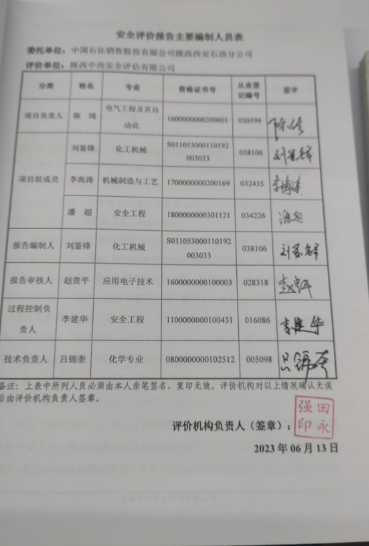 安全评价报告主要编制人员表
委托单位：中国石化销售股份有限公司陕西西安石油分公司
评价单位：陕西中尚安全评估有限公司
分类 姓名 专业 资格证书号 从业登记编号 签字
项目负责人 陈 电气工程及其自动化 1600000000200601 020594
项目组成员 刘鉴锋 化工机械 S011053000110192003033 038106
李海涛 机械制造与工艺 1700000000200169 032435
潘 超 安全工程 1800000000301121 034226
报告编制人 刘鉴锋 化工机械 S011053000110192003033 038106
报告审核人 赵贵平 应用电子技术 1600000000100003 028318
过程控制负责人 李建华 安全工程 1100000000100431 016086 李建华
技术负责人 吕锦奎 化学专业 0800000000102512 005098
备注：上表中所列人员必须由本人亲笔签名，复印无效。评价机构对以上情况确认无误
后由评价机构负责人签章。
评价机构负责人（签章）：
田永强印
2023 年 06 月 13 日